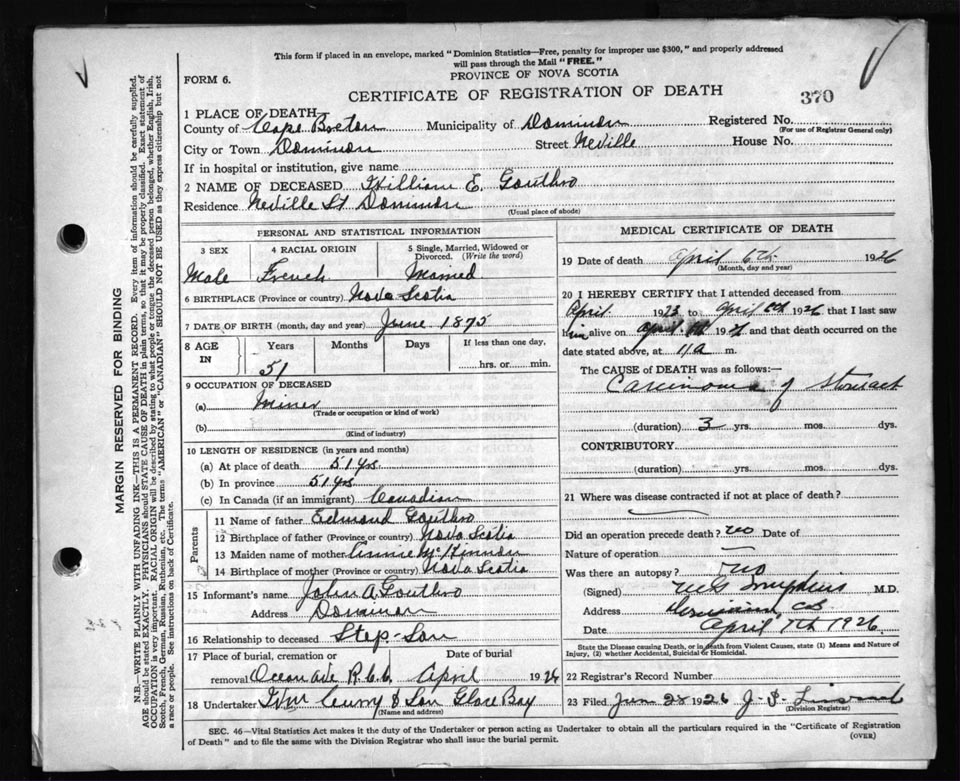 This form if placed in an envelope, marked "Dominion Statistics—Free, penalty for improper use $300," and properly addressed
will pass through the Mail "FREE."
FORM 6.
PROVINCE OF NOVA SCOTIA
CERTIFICATE OF REGISTRATION OF DEATH
370
1 PLACE OF DEATH
County of Cape Breton Municipality of Dominion Registered No.
(For use of Registrar General only)
City or Town Dominion Street Neville House No.
If in hospital or institution, give name
2 NAME OF DECEASED William E. Gouthro
Residence Neville St Dominion
(Usual place of abode)
PERSONAL AND STATISTICAL INFORMATION
3 SEX 4 RACIAL ORIGIN 5 Single, Married, Widowed or Divorced. (Write the word)
Male French Married
6 BIRTHPLACE (Province or country) Nova Scotia
7 DATE OF BIRTH (month, day and year) June 1875
8 AGE IN Years Months Days If less than one day,
51 hrs. or min.
9 OCCUPATION OF DECEASED
(a) Miner
(Trade or occupation or kind of work)
(b)
(Kind of industry)
10 LENGTH OF RESIDENCE (in years and months)
(a) At place of death 51 yrs
(b) In province 51 yrs
(c) In Canada (if an immigrant) Canadian
Parents
11 Name of father Edmond Gouthro
12 Birthplace of father (Province or country) Nova Scotia
13 Maiden name of mother Annie McKinnon
14 Birthplace of mother (Province or country) Nova Scotia
15 Informant's name John A Gouthro
Address Dominion
16 Relationship to deceased Step-Son
17 Place of burial, cremation or Date of burial
removal Ocean ave R.C.C. April 1926
18 Undertaker Wm Curry & Son Glace Bay
(Name and address)
MEDICAL CERTIFICATE OF DEATH
19 Date of death April 6th 1926
(Month, day and year)
20 I HEREBY CERTIFY that I attended deceased from
April 1925 to April 6th 1926 that I last saw
him alive on April 1926 and that death occurred on
date stated above, at 11 a m.
The CAUSE of DEATH was as follows:—
Carcinoma of Stomach
(duration) 3 yrs. mos. dys.
CONTRIBUTORY.
(duration) yrs. mos. dys.
21 Where was disease contracted if not at place of death?
Did an operation precede death? no Date of
Nature of operation
Was there an autopsy? no
(Signed) M.D.
Address Dominion, CB
Date April 7th 1926.
State the Disease causing Death, or in death from Violent Causes, state (1) Means and Nature of
Injury, (2) whether Accidental, Suicidal or Homicidal.
22 Registrar's Record Number
23 Filed Jun 28 1926
(Division Registrar)
SEC. 46—Vital Statistics Act makes it the duty of the Undertaker or person acting as Undertaker to obtain all the particulars required in the "Certificate of Registration
of Death" and to file the same with the Division Registrar who shall issue the burial permit.
(OVER)
MARGIN RESERVED FOR BINDING
N.B.—WRITE PLAINLY WITH UNFADING INK—THIS IS A PERMANENT RECORD. Every item of information should be carefully supplied.
AGE should be stated EXACTLY. PHYSICIANS should STATE CAUSE OF DEATH in plain terms, so that it may be properly classified. Exact statement of
OCCUPATION is very important. RACIAL ORIGIN will be described by stating to what people or tongue the deceased person belonged, whether English, Irish,
Scotch, French, German, Russian, Ruthenian, etc. The terms "AMERICAN" or "CANADIAN" SHOULD NOT BE USED as they express citizenship but not
a race or people. See instructions on back of Certificate.